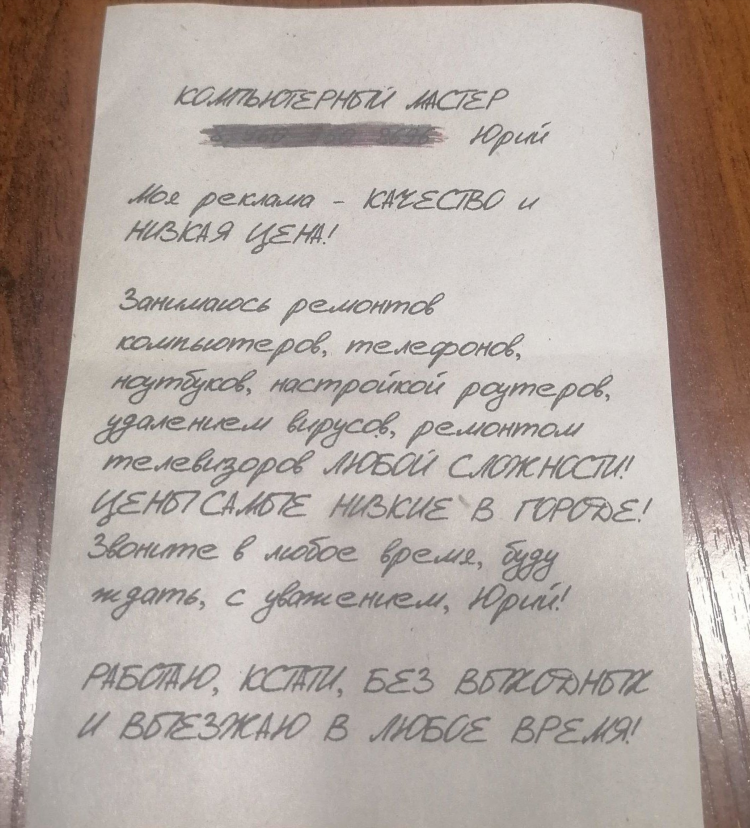 КОМПЬЮТЕРНЫЙ МАСТЕР
Юрий
Моя реклама - КАЧЕСТВО и
НИЗКАЯ ЦЕНА!
Занимаюсь ремонтов
компьютеров, телефонов,
ноутбуков, настройкой роутеров,
удалением вирусов, ремонтом
телевизоров ЛЮБОЙ СЛОЖНОСТИ!
ЦЕНЫ САМЫЕ НИЗКИЕ В ГОРОДЕ!
Звоните в любое время, буду
ждать, с уважением, Юрий!
РАБОТАЮ, КСТАТИ, БЕЗ ВЫХОДНЫХ
И ВЫЕЗЖАЮ В ЛЮБОЕ ВРЕМЯ!